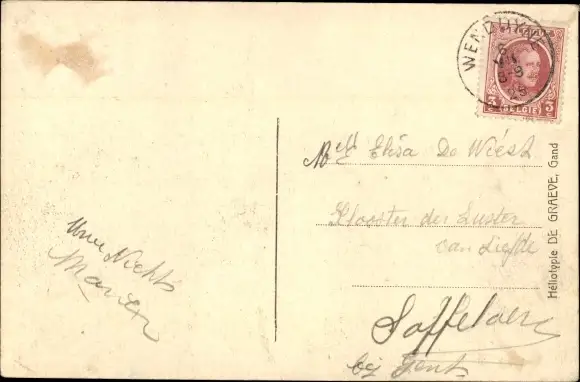 WENDUYNE
3 BELGIË 3
Mlle Elisa De Wiest
Klooster der Zuster
van Liefde
Saffelaere
bij Gent
Uwe Nichts
Héliotypie DE GRAEVE, Gand